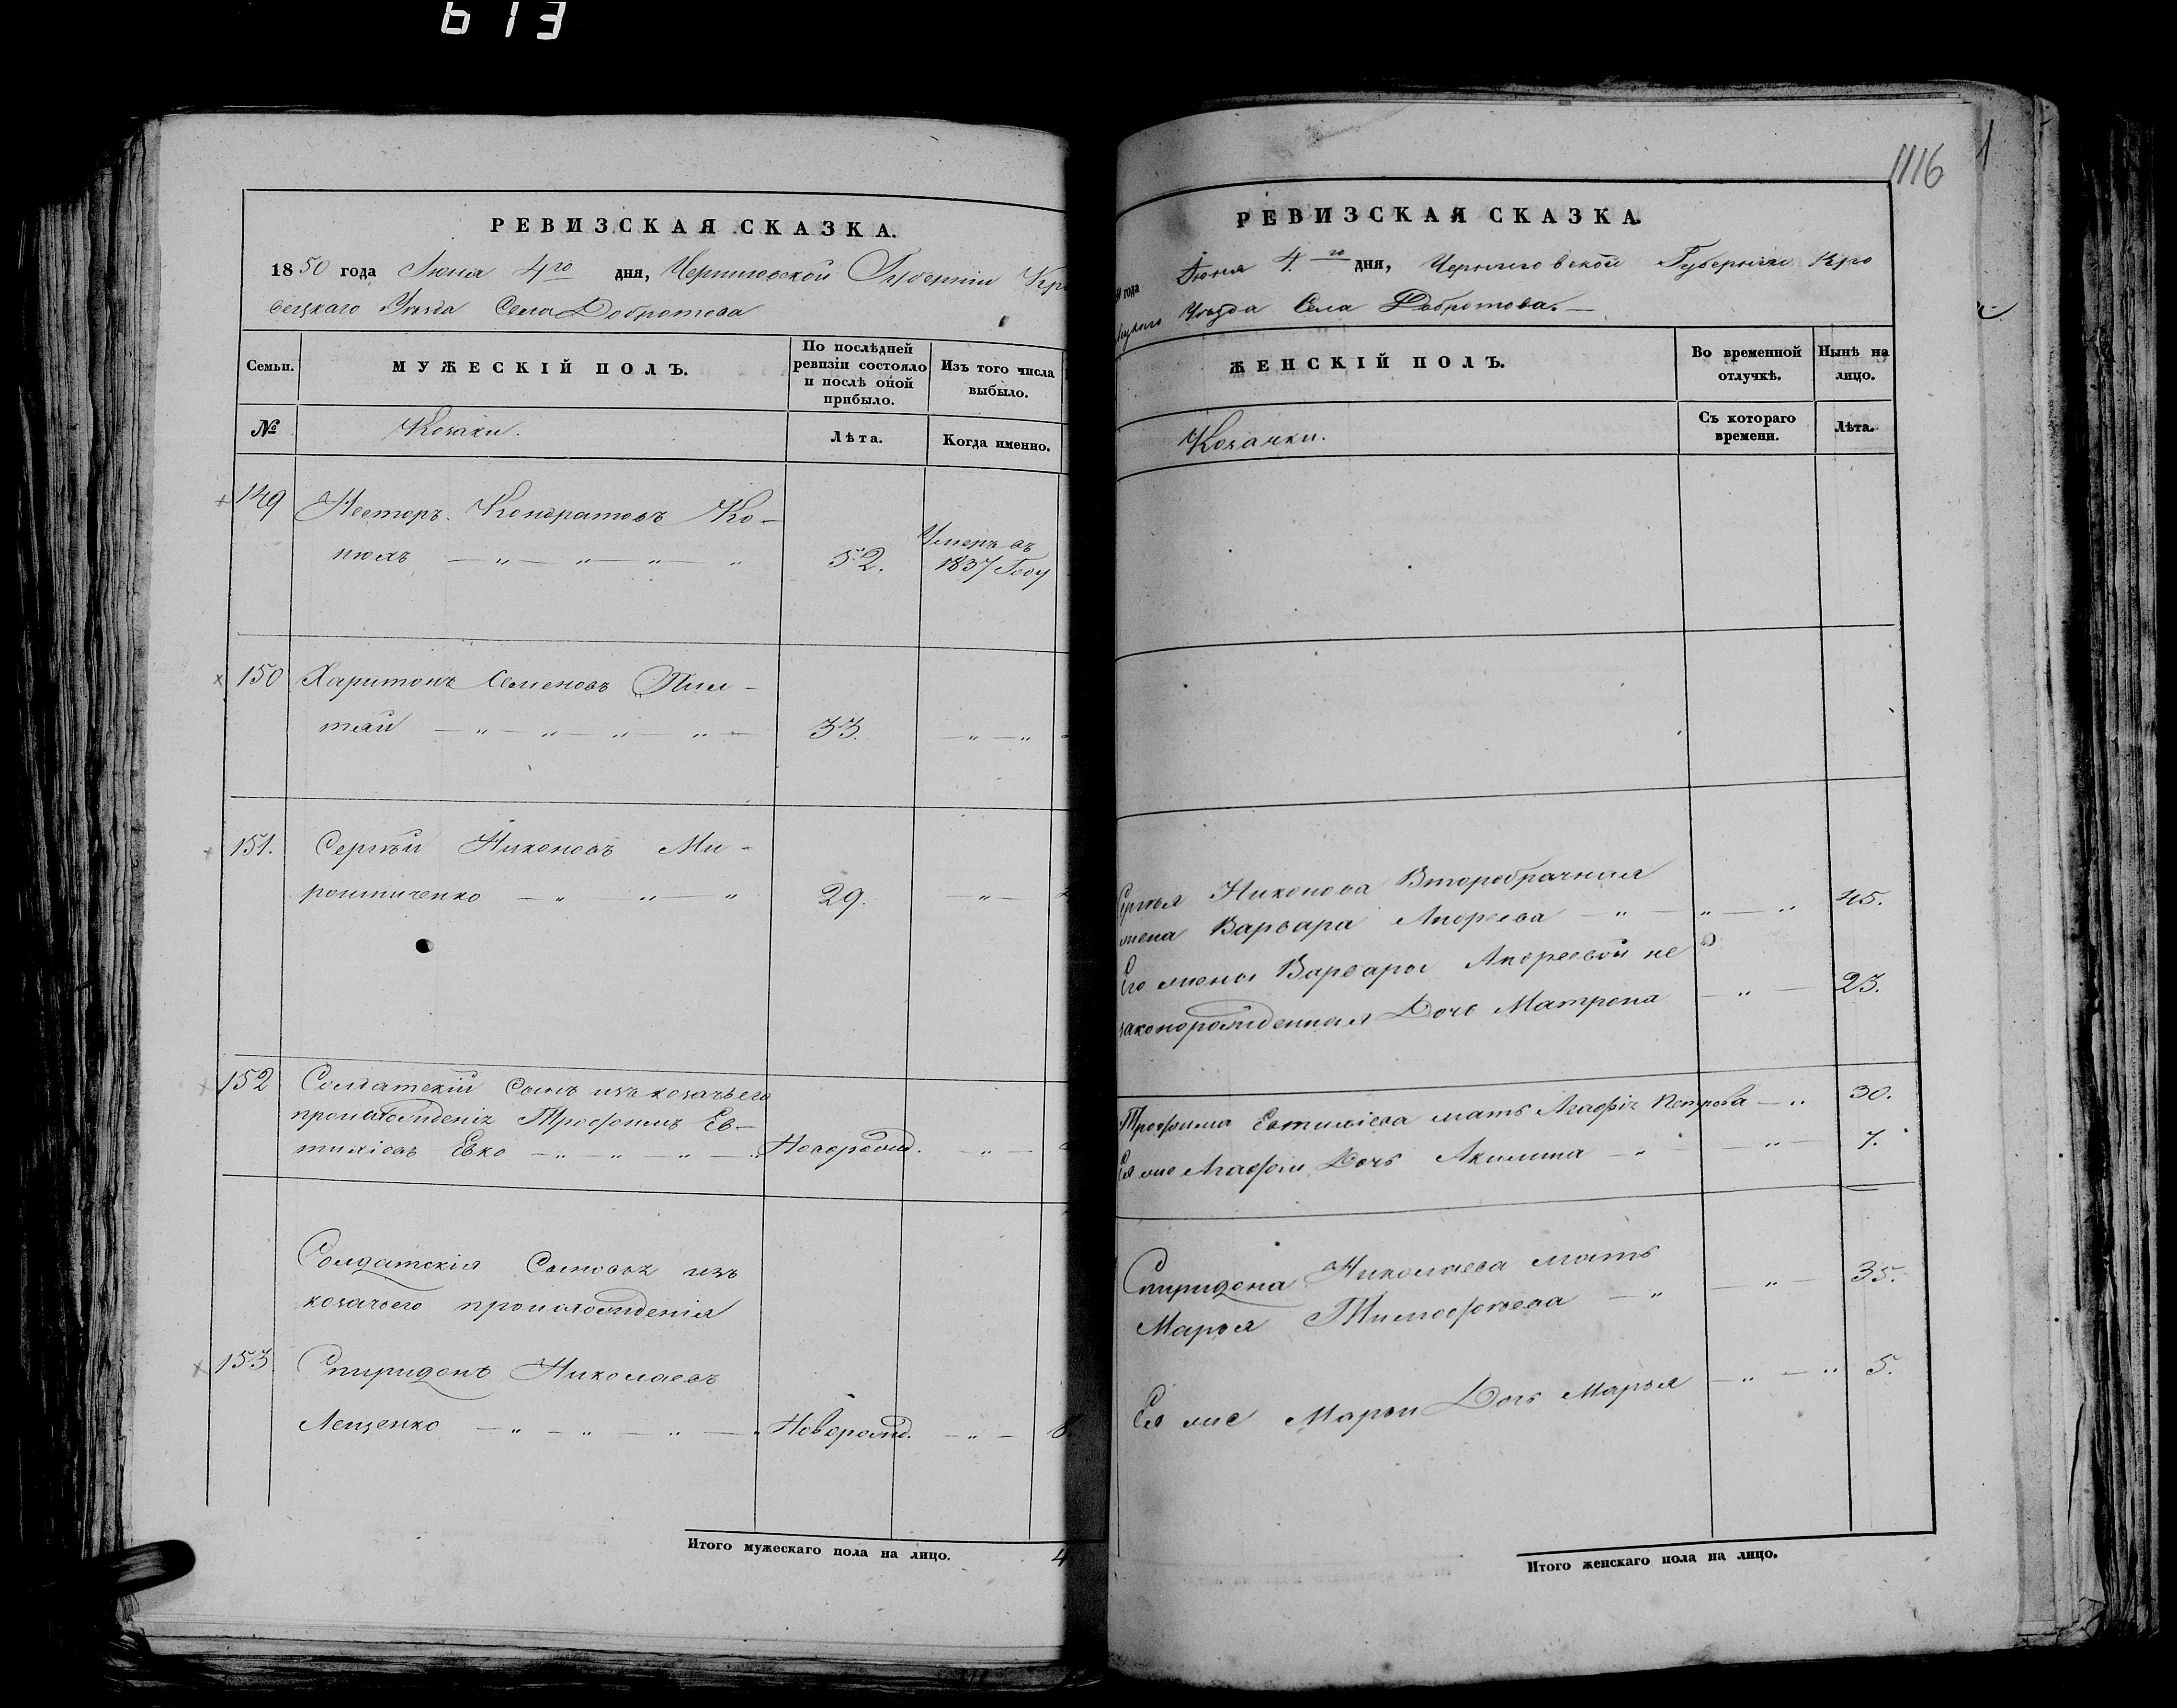 613
РЕВИЗСКАЯ СКАЗКА.
1850 года Июня 4го дня, Черниговской Губерніи Кро
вецкаго Уѣзда Села Добротова
Семьи.
МУЖЕСКІЙ ПОЛЪ.
По послѣдней
ревизіи состояло
и послѣ оной
прибыло.
Изъ того числа
выбыло.
№
Козаки.
Лѣта.
Когда именно.
149 Несторъ Кондратовъ Ко-
нюхъ 52. Умеръ въ
1837 Году
150 Харитонъ Семеновъ
тай 33.
151. Сергѣй Никоновъ Ми-
рошниченко 29.
152 Солдатскій Сынъ изъ козачьего
происхожденія Трофимъ Ев-
тихіевъ Евко Новорожд.
Солдатскія Сыновья изъ
козачьего происхожденія
153 Спиридонъ Николаевъ
Лещенко Новорожд. 8
Итого мужескаго пола на лицо. 4
1116
РЕВИЗСКАЯ СКАЗКА.
года Июня 4.го дня, Черниговской Губерніи Кро
Уѣзда Села Добротова.
ЖЕНСКІЙ ПОЛЪ.
Во временной
отлучкѣ.
Нынѣ на
лицо.
Козачки.
Съ котораго
времени.
Лѣта.
Сергѣя Никонова Второбрачная
жена Варвара Андреева 45.
Его жены Варвары Андреевой не
законорожденная Дочь Матрона 23.
Трофима Евтихіева мать Агафія Петрова 30.
Ея же Агафіи Дочь Акилина 7.
Спиридона Николаева мать
Марья Тимофѣева 35.
Ея же Марьи Дочь Марья 5.
Итого женскаго пола на лицо.